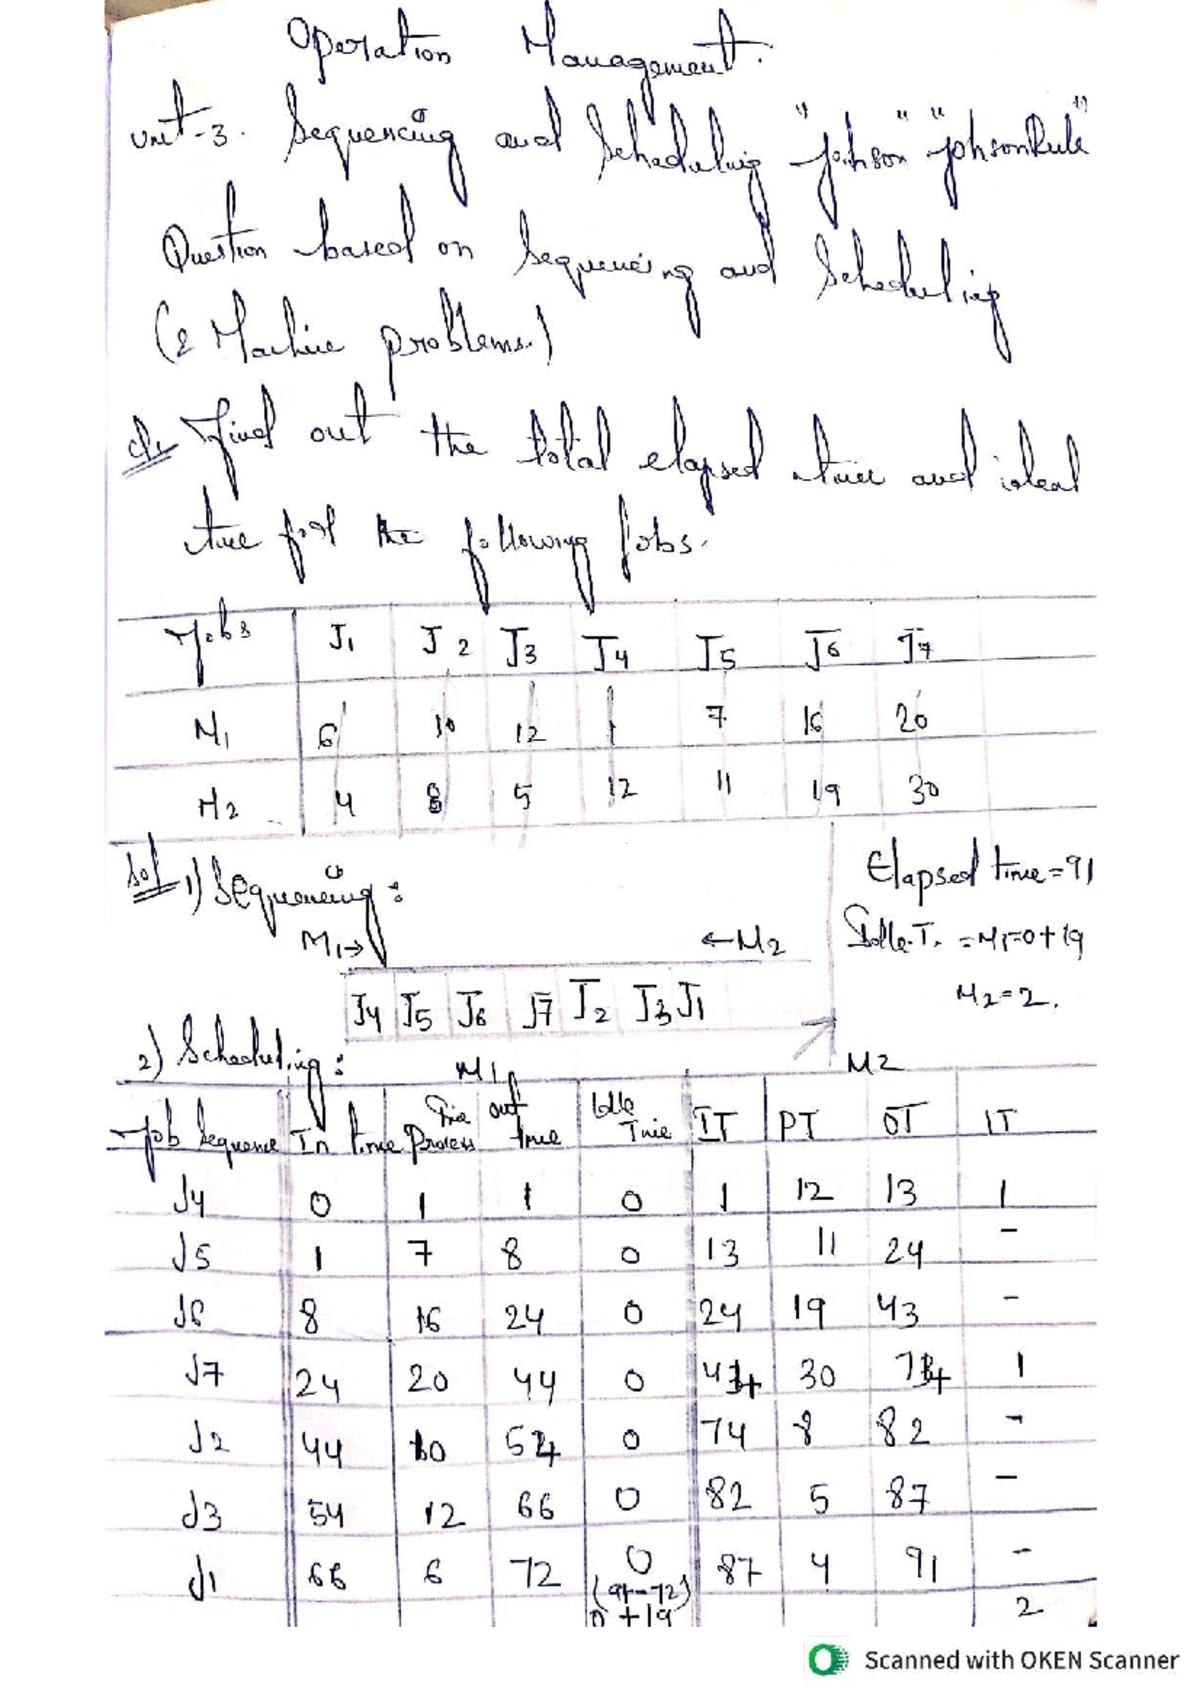 Operation Management.
Unit-3. Sequencing and Scheduling "Johson" "JohsonRule"
Question based on Sequencing and Scheduling
(2 Machine problems.)
Q1. Find out the total elapsed time and ideal
time for the following jobs.
Jobs J1 J2 J3 J4 J5 J6 J7
M1 6 10 12 1 7 16 20
M2 4 8 5 12 11 19 30
Sol 1) Sequencing:
M1→ ←M2
J4 J5 J6 J7 J2 J3 J1
Elapsed time=91
Idle.T. =M1=0+19
M2=2.
2) Scheduling:
M1 M2
Job Sequence In time Process Time out time Idle Time IT PT OT IT
J4 0 1 1 0 1 12 13 1
J5 1 7 8 0 13 11 24 -
J6 8 16 24 0 24 19 43 -
J7 24 20 44 0 44 30 74 1
J2 44 10 54 0 74 8 82 -
J3 54 12 66 0 82 5 87 -
J1 66 6 72 0 87 4 91 -
(91-72)
0+19 2
Scanned with OKEN Scanner